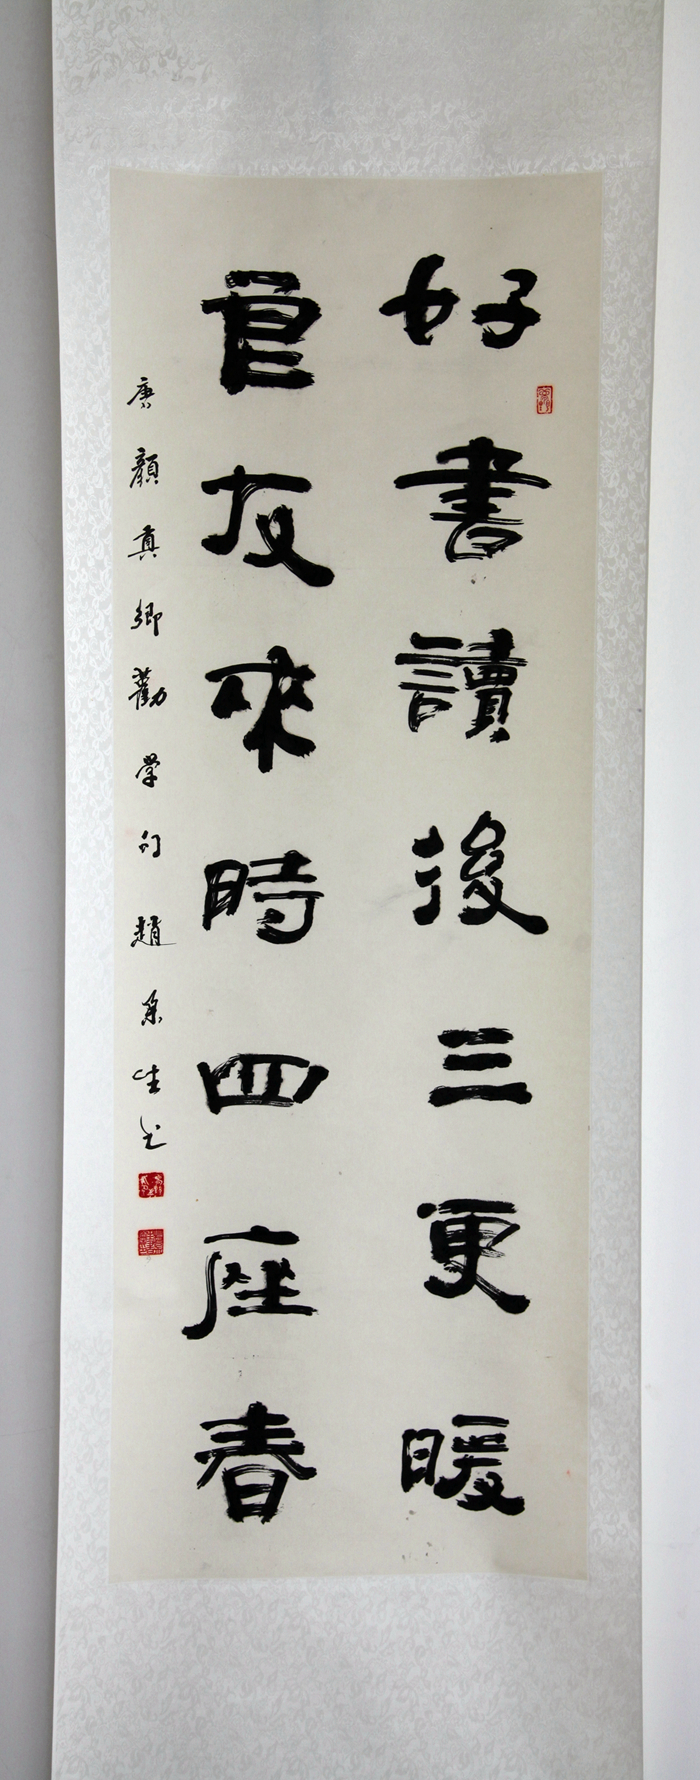 好書讀後三更暖
良友來時四座春
唐顏真卿勸学句趙景生书